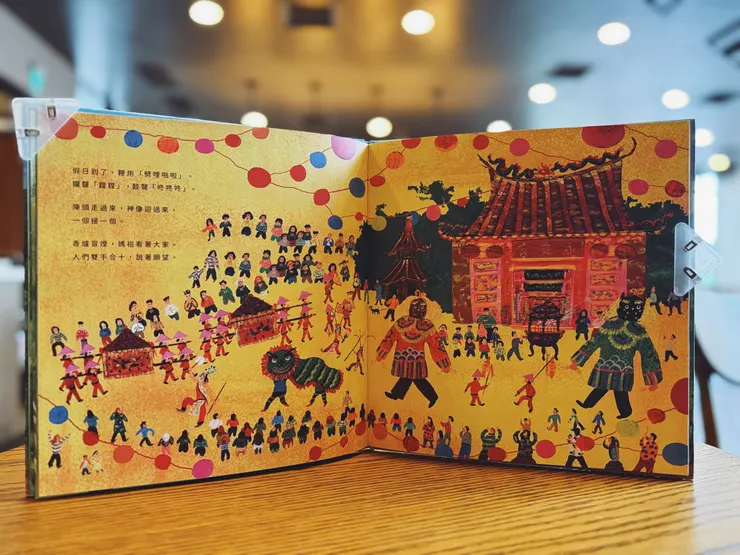 假日到了，鞭炮「劈哩啪啦」。
鑼聲「鏗鏗」，鼓聲「咚咚咚」。
陣頭走過來，神像迎過來，
一個接一個。
香爐冒煙，媽祖看著大家，
人們雙手合十，說著願望。